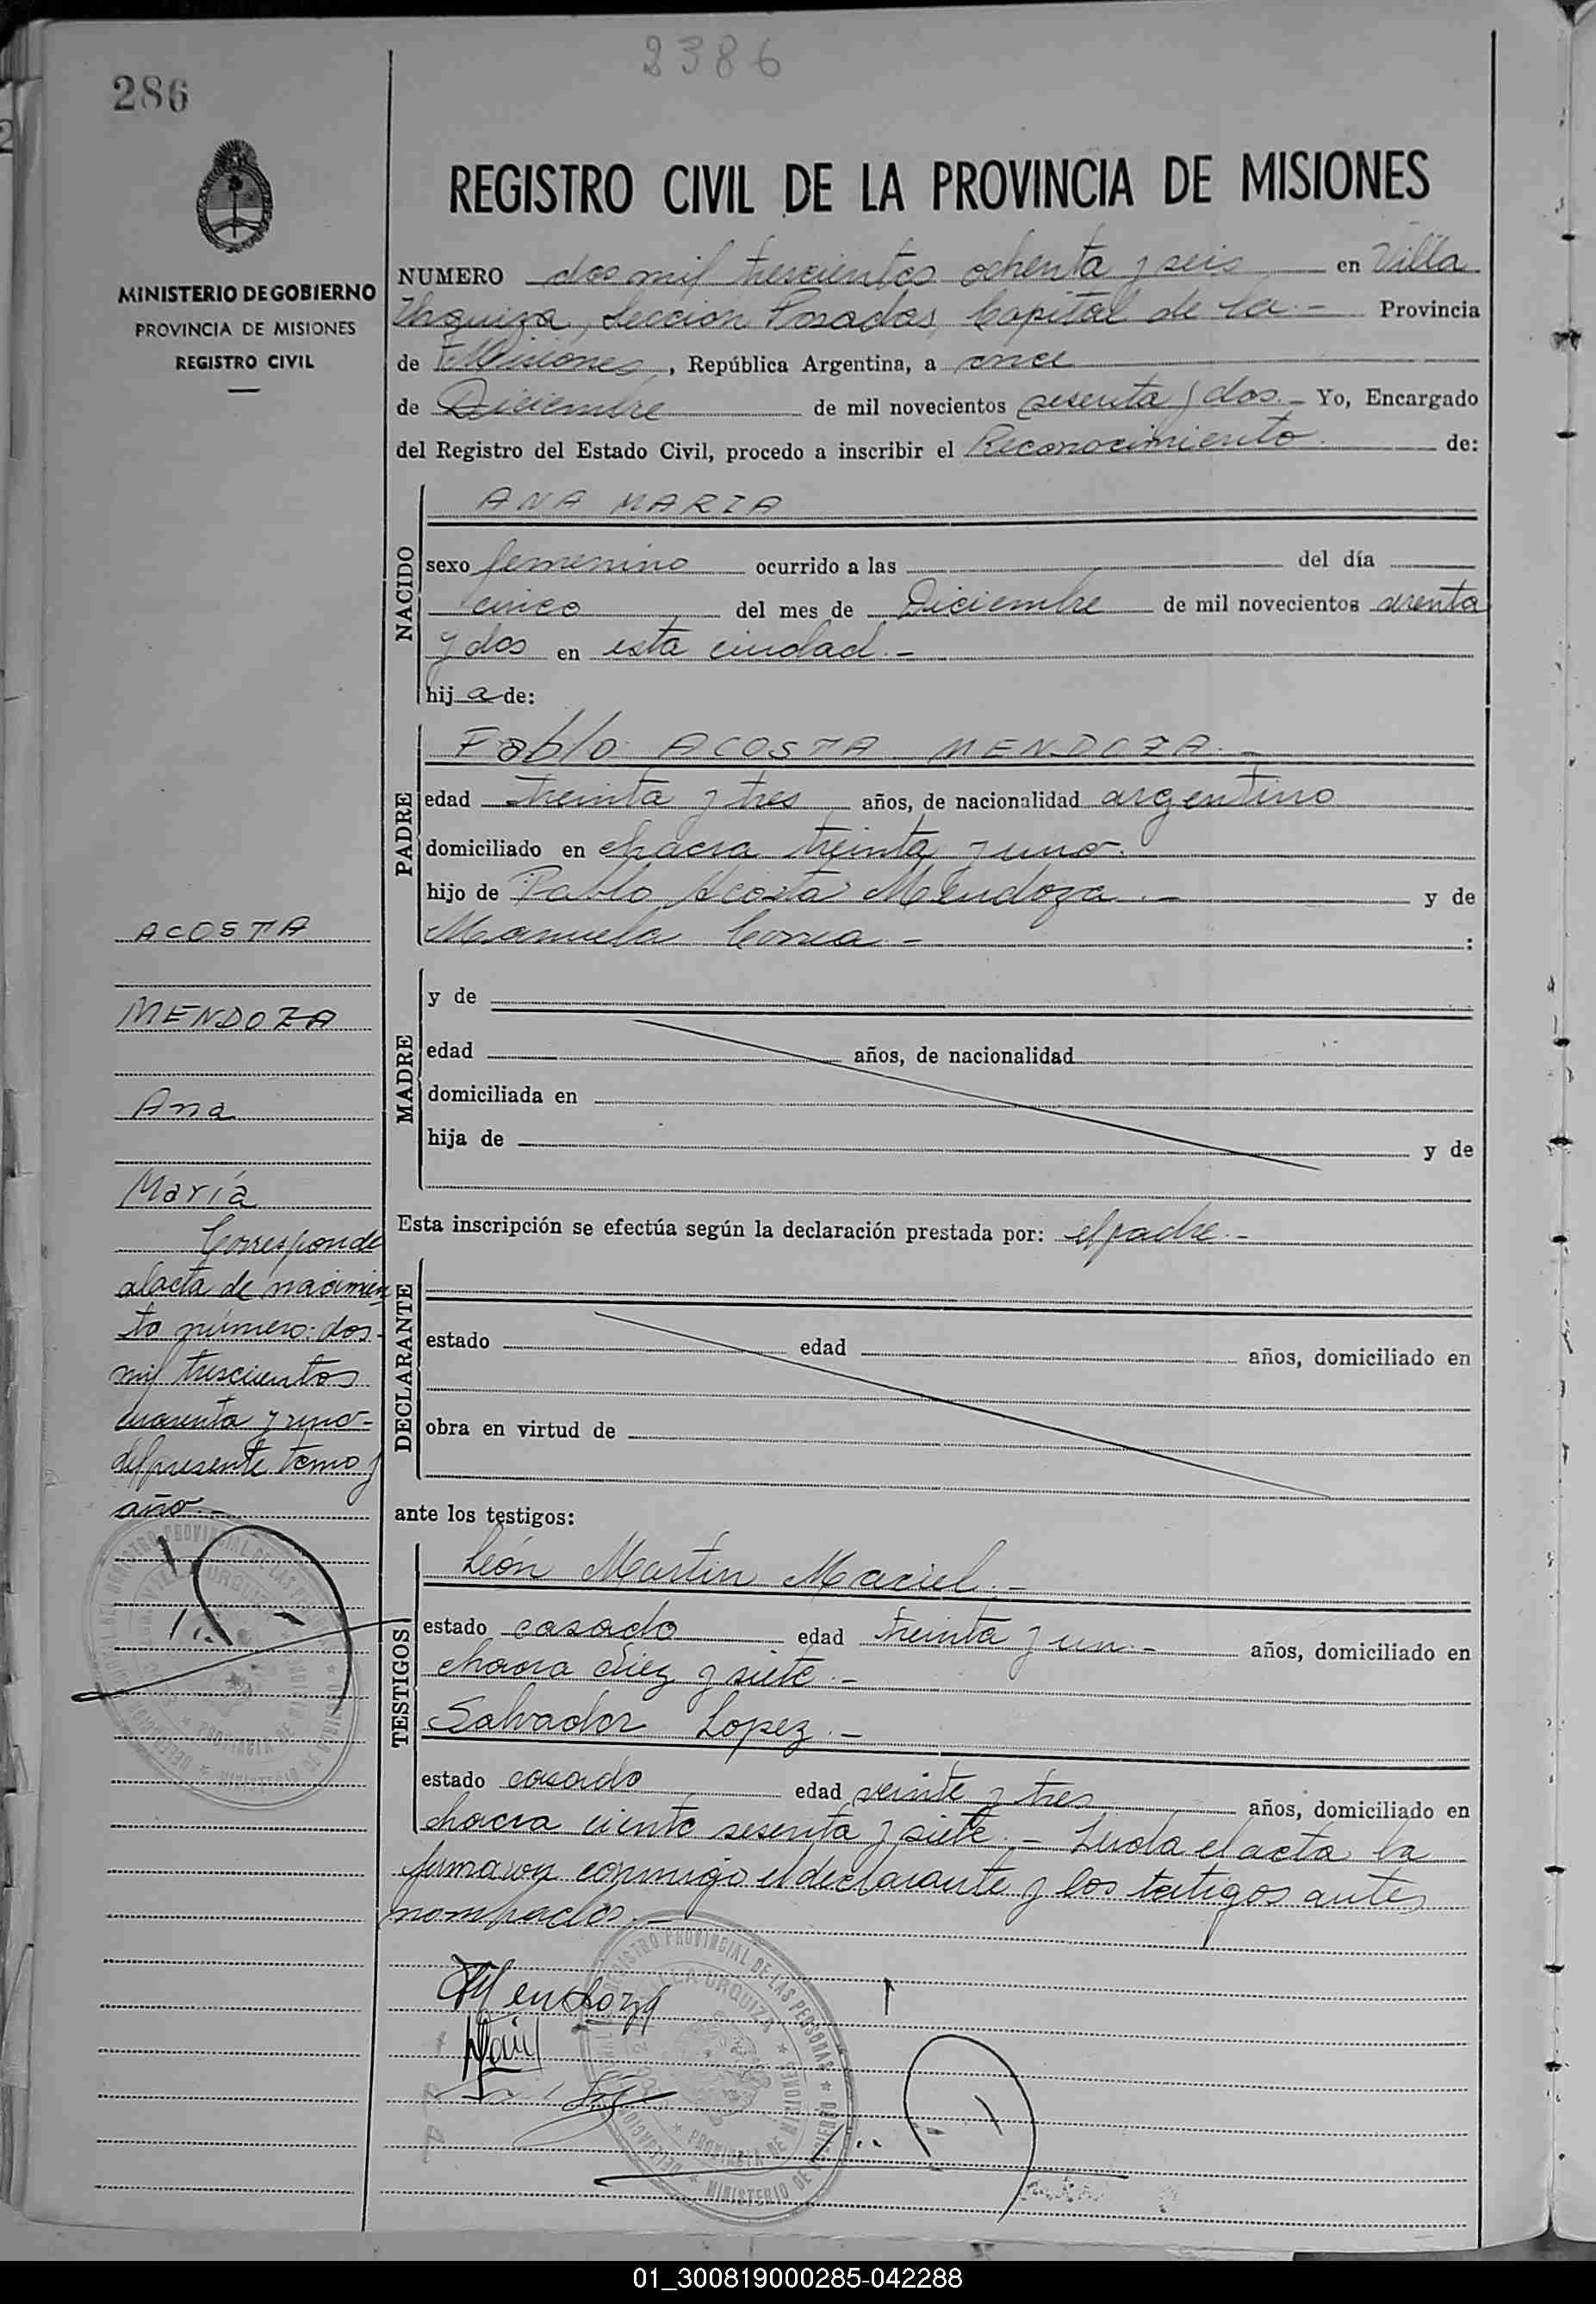 2386
286
REGISTRO CIVIL DE LA PROVINCIA DE MISIONES
MINISTERIO DE GOBIERNO
PROVINCIA DE MISIONES
REGISTRO CIVIL
NUMERO dos mil trescientos ochenta y seis en Villa
Urquiza, Sección Posadas, Capital de la.- Provincia
de Misiones, República Argentina, a once
de Diciembre de mil novecientos sesenta y dos.- Yo, Encargado
del Registro del Estado Civil, procedo a inscribir el Reconocimiento de:
NACIDO
ANA MARIA
sexo femenino ocurrido a las del día
cinco del mes de Diciembre de mil novecientos sesenta
y dos en esta ciudad.-
hija de:
PADRE
Pablo ACOSTA MENDOZA.-
edad treinta y tres años, de nacionalidad argentino
domiciliado en chacra treinta y uno.
hijo de Pablo Acosta Mendoza.- y de
Manuela Correa.- :
MADRE
y de
edad años, de nacionalidad
domiciliada en
hija de y de
Esta inscripción se efectúa según la declaración prestada por: el padre.-
DECLARANTE
estado edad años, domiciliado en
obra en virtud de
ante los testigos:
TESTIGOS
León Martin Maciel.-
estado casado edad treinta y un.- años, domiciliado en
chacra diez y siete.-
Salvador Lopez.-
estado casado edad veinte y tres años, domiciliado en
chacra ciento sesenta y siete.- Leida el acta la
firmaron conmigo el declarante y los testigos antes
nombrados.-
Mendoza
ACOSTA
MENDOZA
Ana
María
Corresponde
al acta de nacimien
to número: dos-
mil trescientos
cuarenta y uno-
del presente tomo y
año.-
REGISTRO PROVINCIAL DE LAS PERSONAS
VILLA URQUIZA
PROVINCIA DE MISIONES
MINISTERIO DE GOBIERNO
01_300819000285-042288